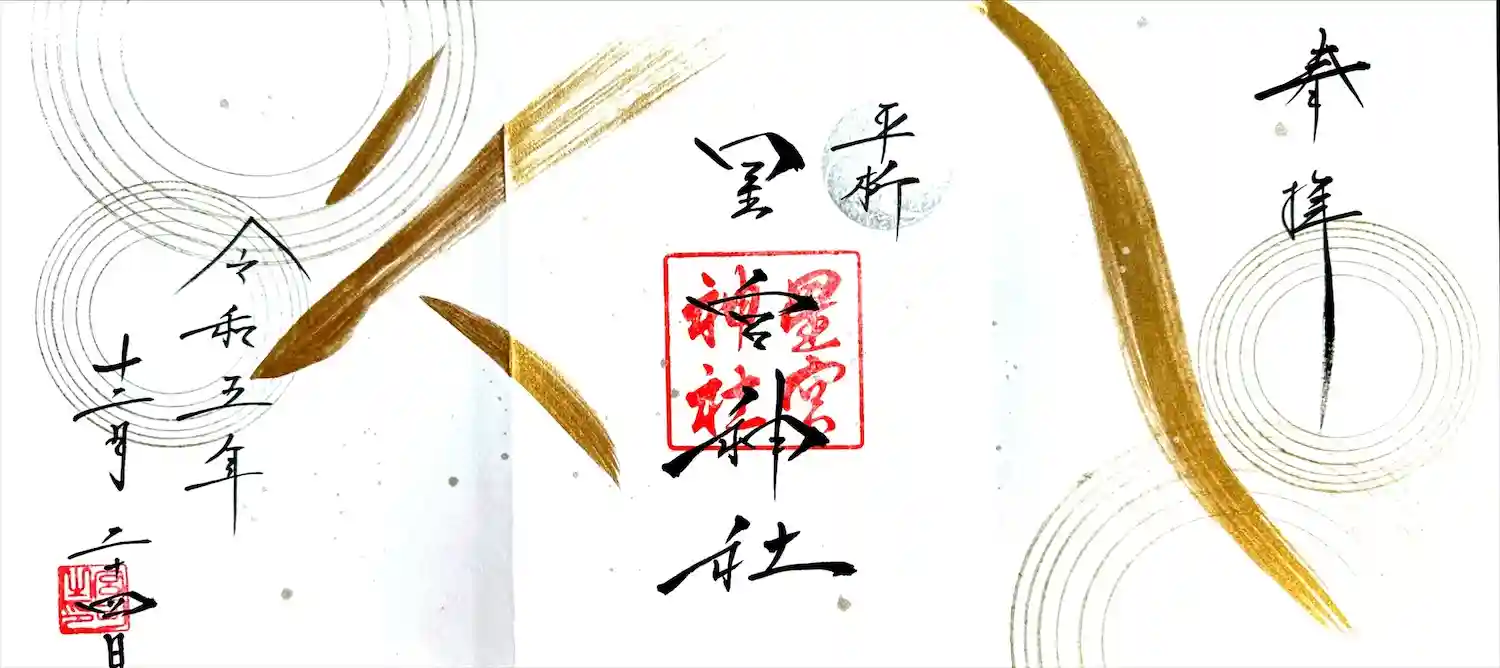 奉拝
平柳
星宮神社
星宮
神社
令和五年
十二月二十四日